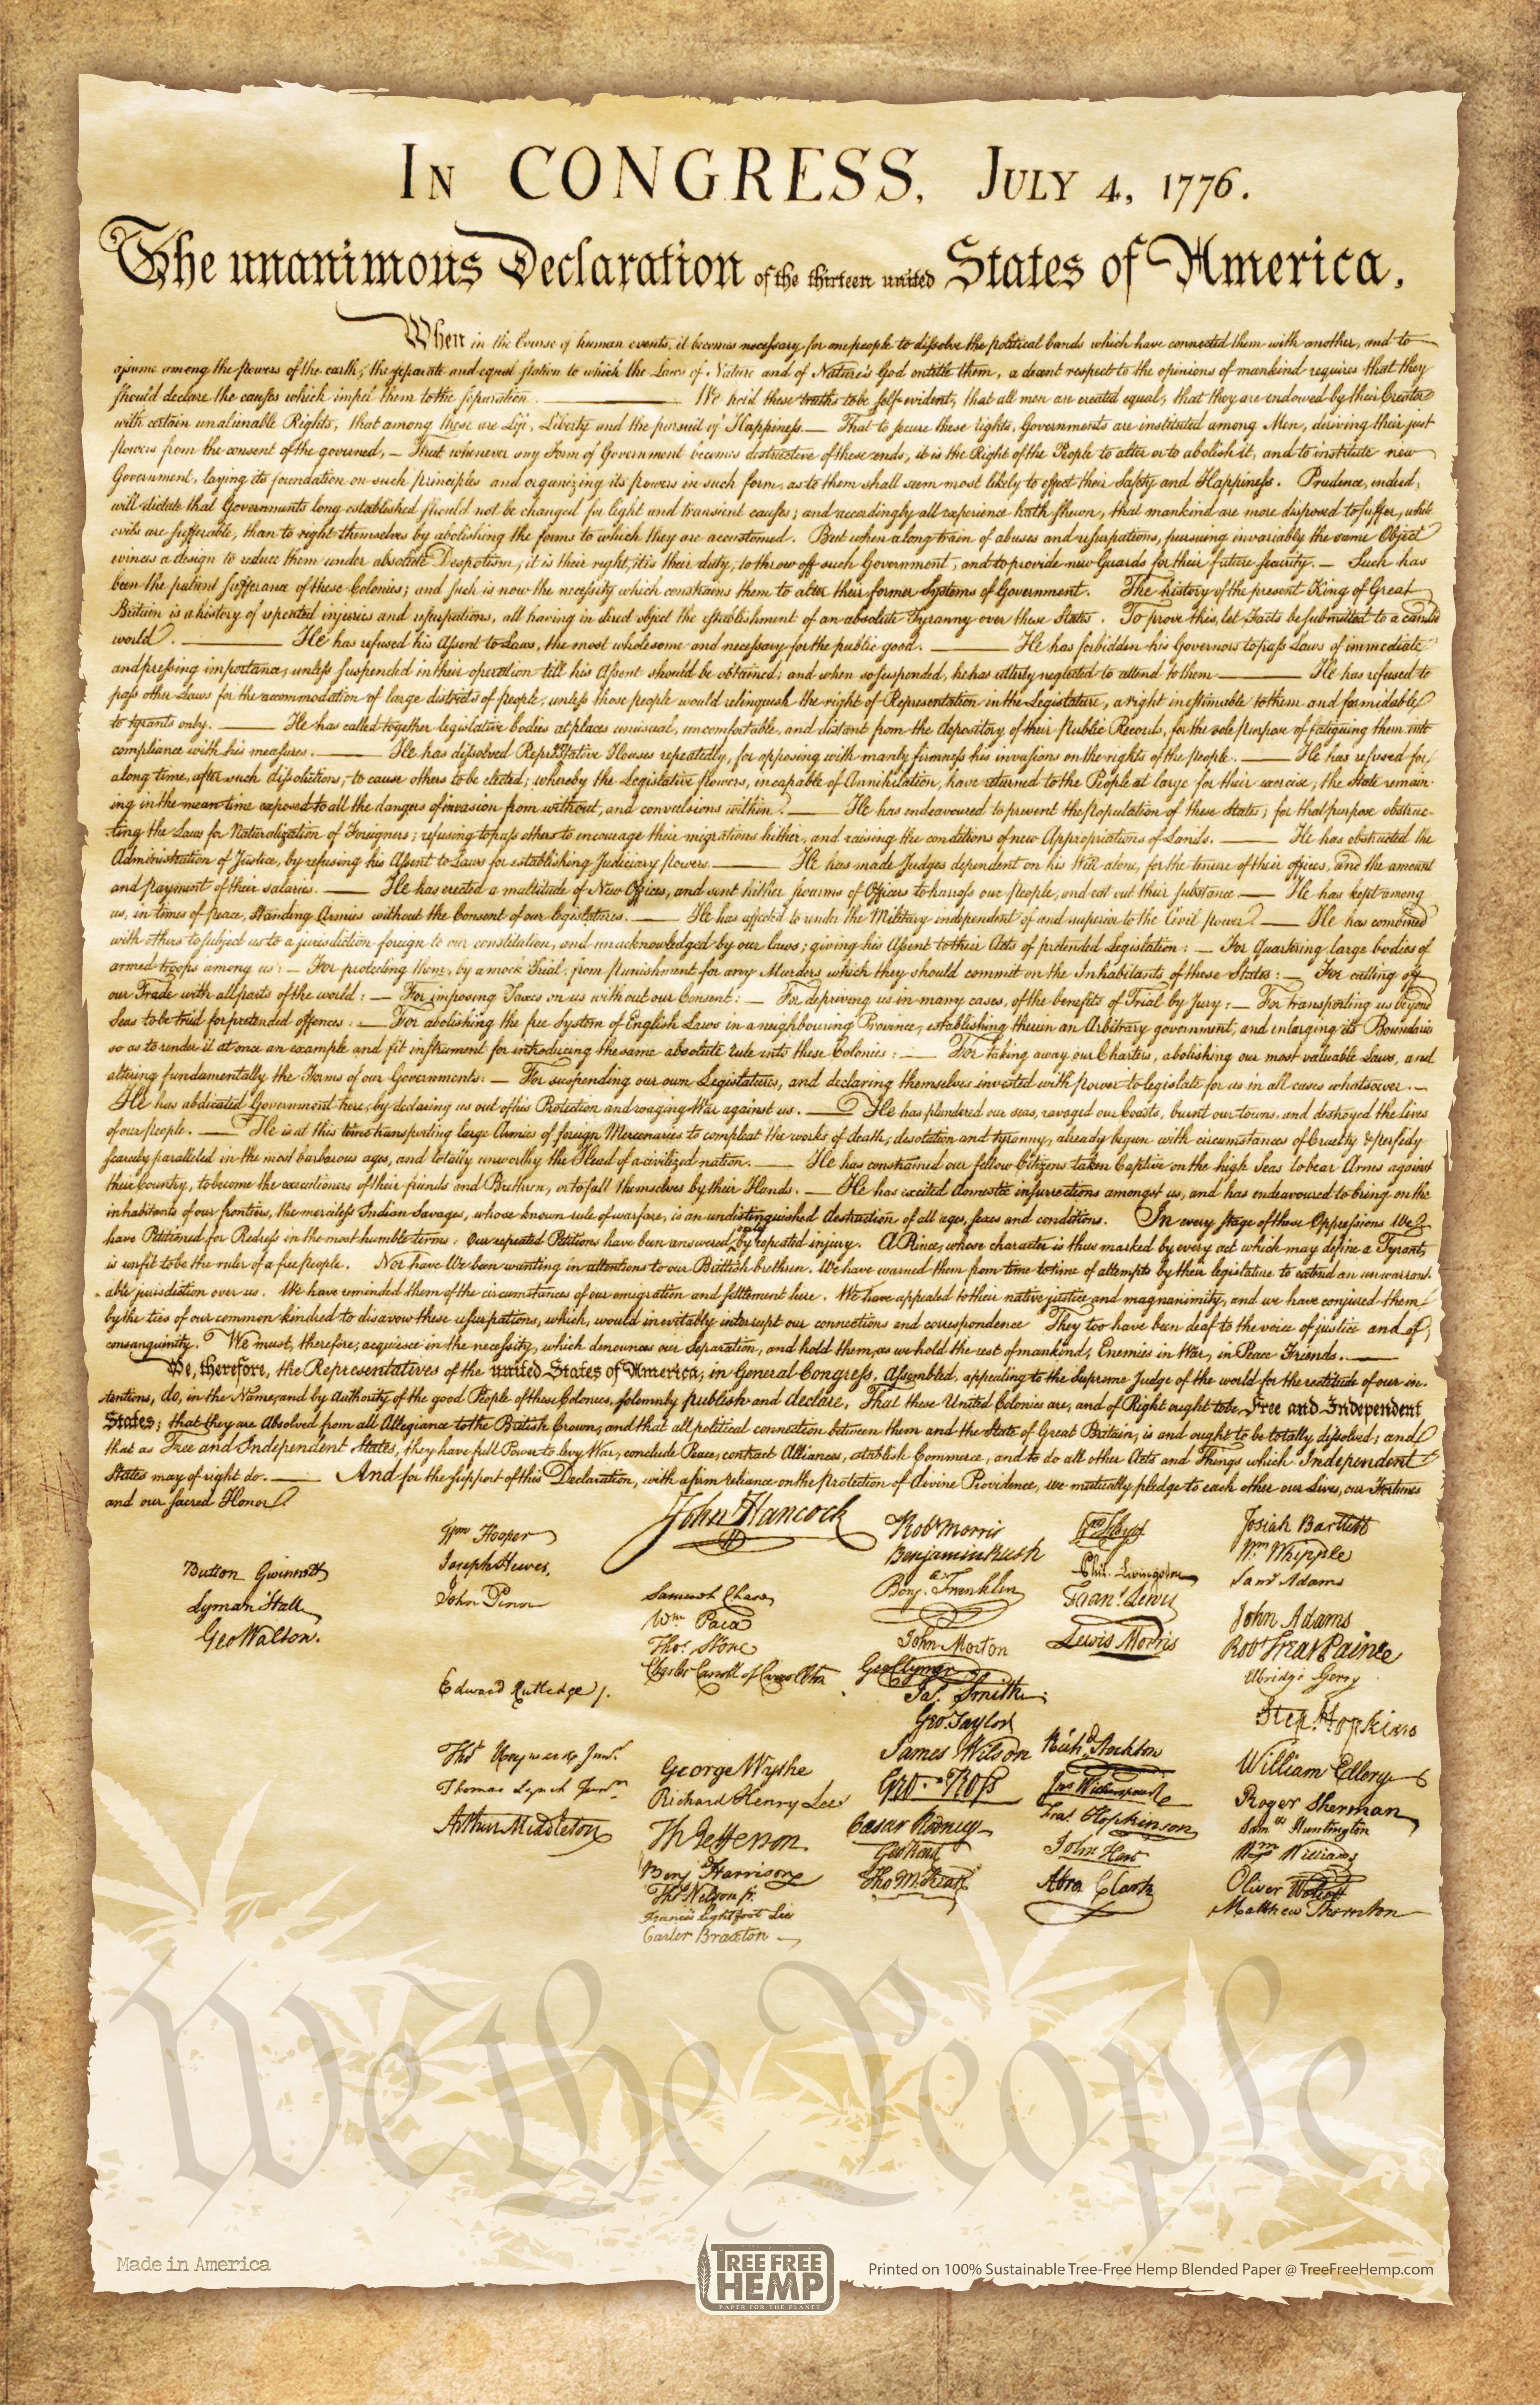 In CONGRESS, July 4, 1776.
The unanimous Declaration of the thirteen united States of America,
When in the Course of human events, it becomes necessary for one people to dissolve the political bands which have connected them with another, and to
assume among the powers of the earth, the separate and equal station to which the Laws of Nature and of Nature's God entitle them, a decent respect to the opinions of mankind requires that they
should declare the causes which impel them to the separation. — We hold these truths to be self-evident, that all men are created equal, that they are endowed by their Creator
with certain unalienable Rights, that among these are Life, Liberty and the pursuit of Happiness. — That to secure these rights, Governments are instituted among Men, deriving their just
powers from the consent of the governed, — That whenever any Form of Government becomes destructive of these ends, it is the Right of the People to alter or to abolish it, and to institute new
Government, laying its foundation on such principles and organizing its powers in such form, as to them shall seem most likely to effect their Safety and Happiness. Prudence, indeed,
will dictate that Governments long established should not be changed for light and transient causes; and accordingly all experience hath shewn, that mankind are more disposed to suffer, while
evils are sufferable, than to right themselves by abolishing the forms to which they are accustomed. But when a long train of abuses and usurpations, pursuing invariably the same Object
evinces a design to reduce them under absolute Despotism, it is their right, it is their duty, to throw off such Government, and to provide new Guards for their future security. — Such has
been the patient sufferance of these Colonies; and such is now the necessity which constrains them to alter their former Systems of Government. The history of the present King of Great
Britain is a history of repeated injuries and usurpations, all having in direct object the establishment of an absolute Tyranny over these States. To prove this, let Facts be submitted to a candid
world. — He has refused his Assent to Laws, the most wholesome and necessary for the public good. — He has forbidden his Governors to pass Laws of immediate
and pressing importance, unless suspended in their operation till his Assent should be obtained; and when so suspended, he has utterly neglected to attend to them. — He has refused to
pass other Laws for the accommodation of large districts of people, unless those people would relinquish the right of Representation in the Legislature, a right inestimable to them and formidable
to tyrants only. — He has called together legislative bodies at places unusual, uncomfortable, and distant from the depository of their Public Records, for the sole purpose of fatiguing them into
compliance with his measures. — He has dissolved Representative Houses repeatedly, for opposing with manly firmness his invasions on the rights of the people. — He has refused for
a long time, after such dissolutions, to cause others to be elected; whereby the Legislative powers, incapable of Annihilation, have returned to the People at large for their exercise; the State remain-
ing in the mean time exposed to all the dangers of invasion from without, and convulsions within. — He has endeavoured to prevent the population of these States; for that purpose obstruc-
ting the Laws for Naturalization of Foreigners; refusing to pass others to encourage their migrations hither, and raising the conditions of new Appropriations of Lands. — He has obstructed the
Administration of Justice, by refusing his Assent to Laws for establishing Judiciary powers. — He has made Judges dependent on his Will alone, for the tenure of their offices, and the amount
and payment of their salaries. — He has erected a multitude of New Offices, and sent hither swarms of Officers to harrass our people, and eat out their substance. — He has kept among
us, in times of peace, Standing Armies without the Consent of our legislatures. — He has affected to render the Military independent of and superior to the Civil power. — He has combined
with others to subject us to a jurisdiction foreign to our constitution, and unacknowledged by our laws; giving his Assent to their Acts of pretended Legislation: — For Quartering large bodies of
armed troops among us: — For protecting them, by a mock Trial, from punishment for any Murders which they should commit on the Inhabitants of these States: — For cutting off
our Trade with all parts of the world: — For imposing Taxes on us without our Consent: — For depriving us in many cases, of the benefits of Trial by Jury: — For transporting us beyond
Seas to be tried for pretended offences: — For abolishing the free System of English Laws in a neighbouring Province, establishing therein an Arbitrary government, and enlarging its Boundaries
so as to render it at once an example and fit instrument for introducing the same absolute rule into these Colonies: — For taking away our Charters, abolishing our most valuable Laws, and
altering fundamentally the Forms of our Governments: — For suspending our own Legislatures, and declaring themselves invested with power to legislate for us in all cases whatsoever. —
He has abdicated Government here, by declaring us out of his Protection and waging War against us. — He has plundered our seas, ravaged our Coasts, burnt our towns, and destroyed the lives
of our people. — He is at this time transporting large Armies of foreign Mercenaries to compleat the works of death, desolation and tyranny, already begun with circumstances of Cruelty & perfidy
scarcely paralleled in the most barbarous ages, and totally unworthy the Head of a civilized nation. — He has constrained our fellow Citizens taken Captive on the high Seas to bear Arms against
their Country, to become the executioners of their friends and Brethren, or to fall themselves by their Hands. — He has excited domestic insurrections amongst us, and has endeavoured to bring on the
inhabitants of our frontiers, the merciless Indian Savages, whose known rule of warfare, is an undistinguished destruction of all ages, sexes and conditions. In every stage of these Oppressions We
have Petitioned for Redress in the most humble terms: Our repeated Petitions have been answered only by repeated injury. A Prince, whose character is thus marked by every act which may define a Tyrant,
is unfit to be the ruler of a free people. Nor have We been wanting in attentions to our Brittish brethren. We have warned them from time to time of attempts by their legislature to extend an unwarrant-
able jurisdiction over us. We have reminded them of the circumstances of our emigration and settlement here. We have appealed to their native justice and magnanimity, and we have conjured them
by the ties of our common kindred to disavow these usurpations, which, would inevitably interrupt our connections and correspondence They too have been deaf to the voice of justice and of
consanguinity. We must, therefore, acquiesce in the necessity, which denounces our Separation, and hold them, as we hold the rest of mankind, Enemies in War, in Peace Friends. —
We, therefore, the Representatives of the united States of America, in General Congress, Assembled, appealing to the Supreme Judge of the world for the rectitude of our in-
tentions, do, in the Name, and by Authority of the good People of these Colonies, solemnly publish and declare, That these United Colonies are, and of Right ought to be Free and Independent
States; that they are Absolved from all Allegiance to the British Crown, and that all political connection between them and the State of Great Britain, is and ought to be totally dissolved; and
that as Free and Independent States, they have full Power to levy War, conclude Peace, contract Alliances, establish Commerce, and to do all other Acts and Things which Independent
States may of right do. — And for the support of this Declaration, with a firm reliance on the Protection of divine Providence, we mutually pledge to each other our Lives, our Fortunes
and our sacred Honor
Button Gwinnett
Lyman Hall
Geo Walton.
Wm Hooper
Joseph Hewes,
John Penn
Edward Rutledge /.
Thos Heyward Junr.
Thomas Lynch Junr.
Arthur Middleton
John Hancock
Samuel Chase
Wm. Paca
Thos. Stone
Charles Carroll of Carrollton
George Wythe
Richard Henry Lee
Th Jefferson
Benj Harrison
Thos Nelson jr.
Francis Lightfoot Lee
Carter Braxton
Robt Morris
Benjamin Rush
Benj. Franklin
John Morton
Geo Clymer
Jas. Smith
Geo. Taylor
James Wilson
Geo. Ross
Caesar Rodney
Geo Read
Tho M:Kean
Phil. Livingston
Frans. Lewis
Lewis Morris
Richd. Stockton
Jno Witherspoon
Fras. Hopkinson
John Hart
Abra Clark
Josiah Bartlett
Wm. Whipple
Saml Adams
John Adams
Robt Treat Paine
Elbridge Gerry
Step. Hopkins
William Ellery
Roger Sherman
Saml Huntington
Wm Williams
Oliver Wolcott
Matthew Thornton
We the People
Made in America
TREE FREE
HEMP
PAPER FOR THE PLANET
Printed on 100% Sustainable Tree-Free Hemp Blended Paper @ TreeFreeHemp.com